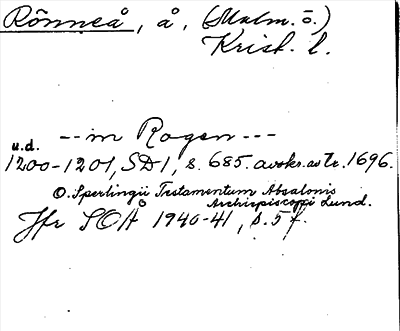 Rönneå, å, (Malm. ö.)
Krist. l.
--in Rogen---
u.d.
1200-1201, SD1, s. 685. avskr. av tr. 1696.
O. Sperlingii Testamentum Absalonis
Archiepiscopi Lund.
Jfr SOÅ 1940-41, s. 5 f.